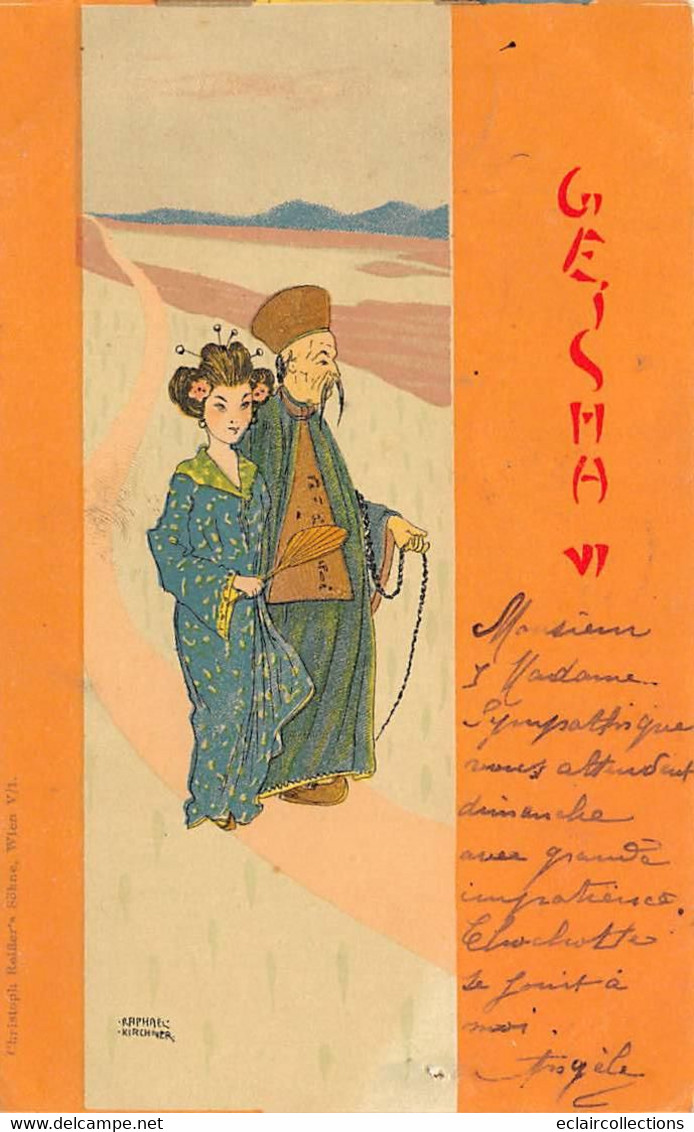 GEISHA VI
Monsieur
& Madame
Sympathique
vous attendent
dimanche
avec grande
impatience.
se joint à
moi.
Angèle
RAPHAEL
KIRCHNER
Christoph Reißer's Söhne, Wien V/1.
delcampe.net
eclaircollections